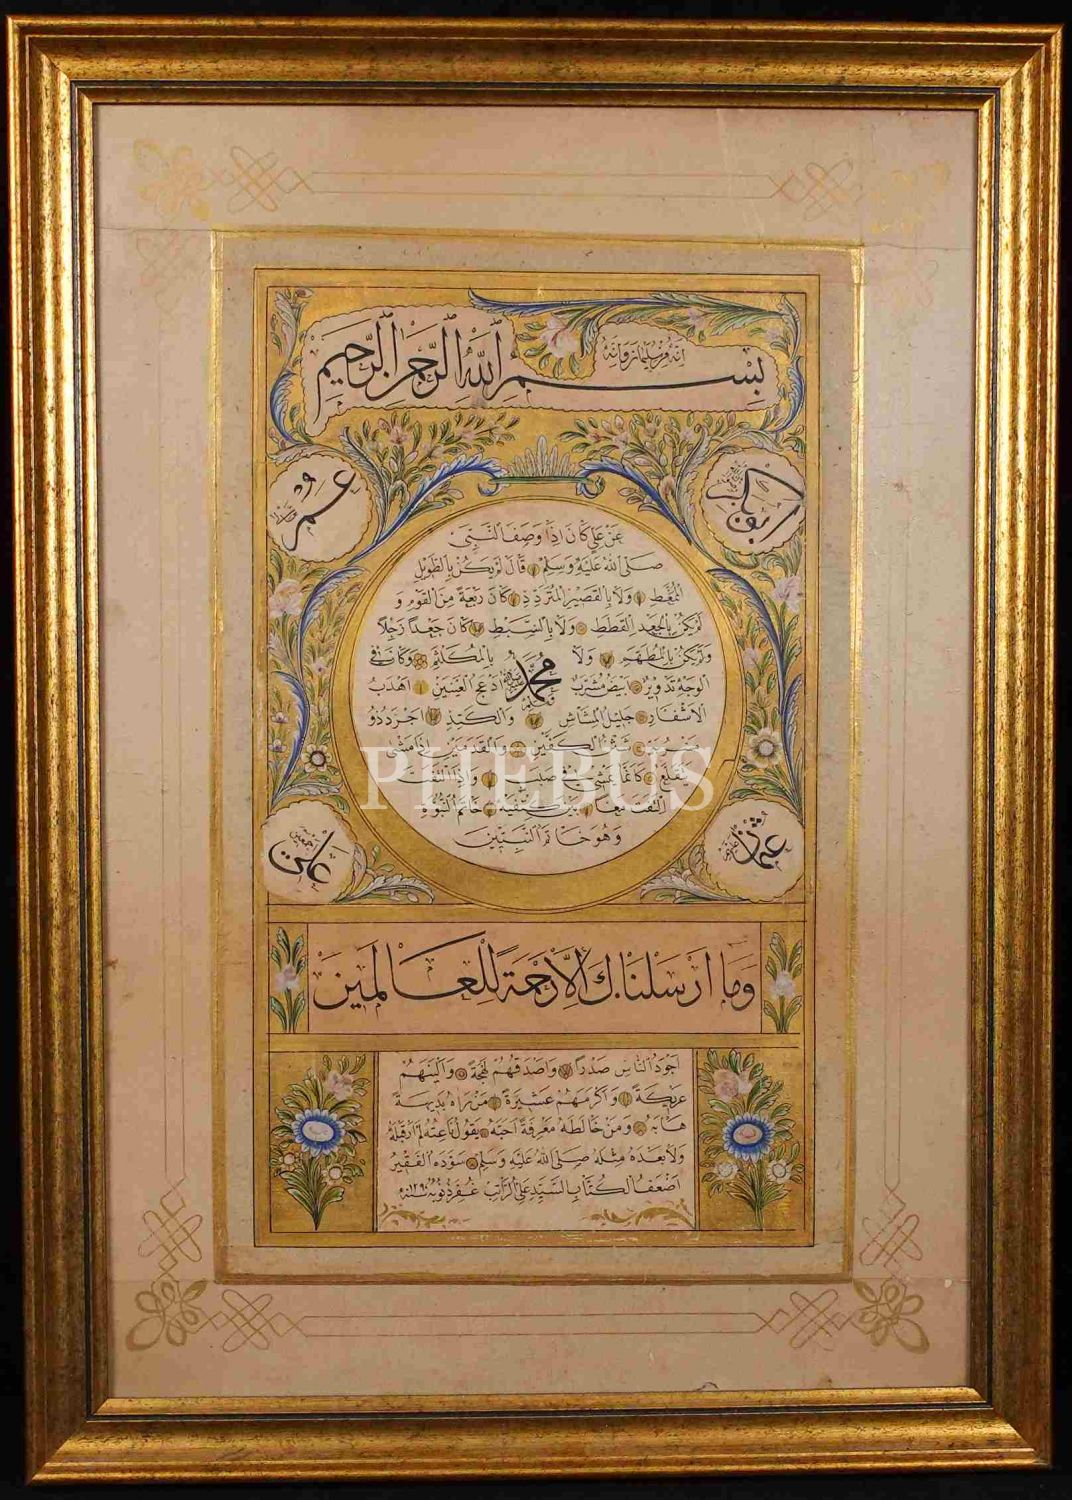 انه من سليمان وانه
بسم الله الرحمن الرحيم
ابو بكر
عمر
عن علي كان اذا وصف النبي
صلى الله عليه وسلم قال لم يكن بالطويل
الممغط ولا بالقصير المتردد كان ربعة من القوم و
لم يكن بالجعد القطط ولا بالسبط كان جعدا رجلا
ولم يكن بالمطهم ولا بالمكلثم وكان في
محمد
الوجه تدوير ابيض مشرب ادعج العينين اهدب
الاشفار جليل المشاش والكتد اجرد ذو
مسربة شثن الكفين والقدمين اذا مشى
يتقلع كانما يمشي في صبب واذا التفت
التفت معا بين كتفيه خاتم النبوة
وهو خاتم النبيين
PHEBUS
عثمان
علي
وما ارسلناك الا رحمة للعالمين
اجود الناس صدرا واصدقهم لهجة والينهم
عريكة واكرمهم عشيرة من راه بديهة
هابه ومن خالطه معرفة احبه يقول ناعته لم ار قبله
ولا بعده مثله صلى الله عليه وسلم سوده الفقير
اضعف الكتاب السيد علي الراتب غفر ذنوبه سنه